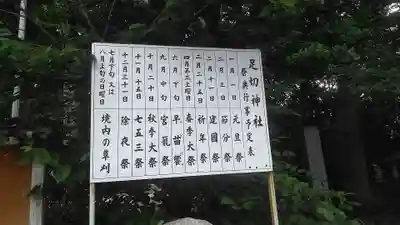 足切神社
祭典行事予定表
一月一日 元旦祭
二月三日 節分祭
二月十一日 建國祭
二月二十五日 祈年祭
四月第三土曜日 春季大祭
六月下旬 早苗祭
九月中旬 宮籠祭
十月二十日 秋季大祭
十一月十五日 七五三祭
十二月三十一日 除夜祭
七月下旬又は八月上旬の日曜日 境内の草刈